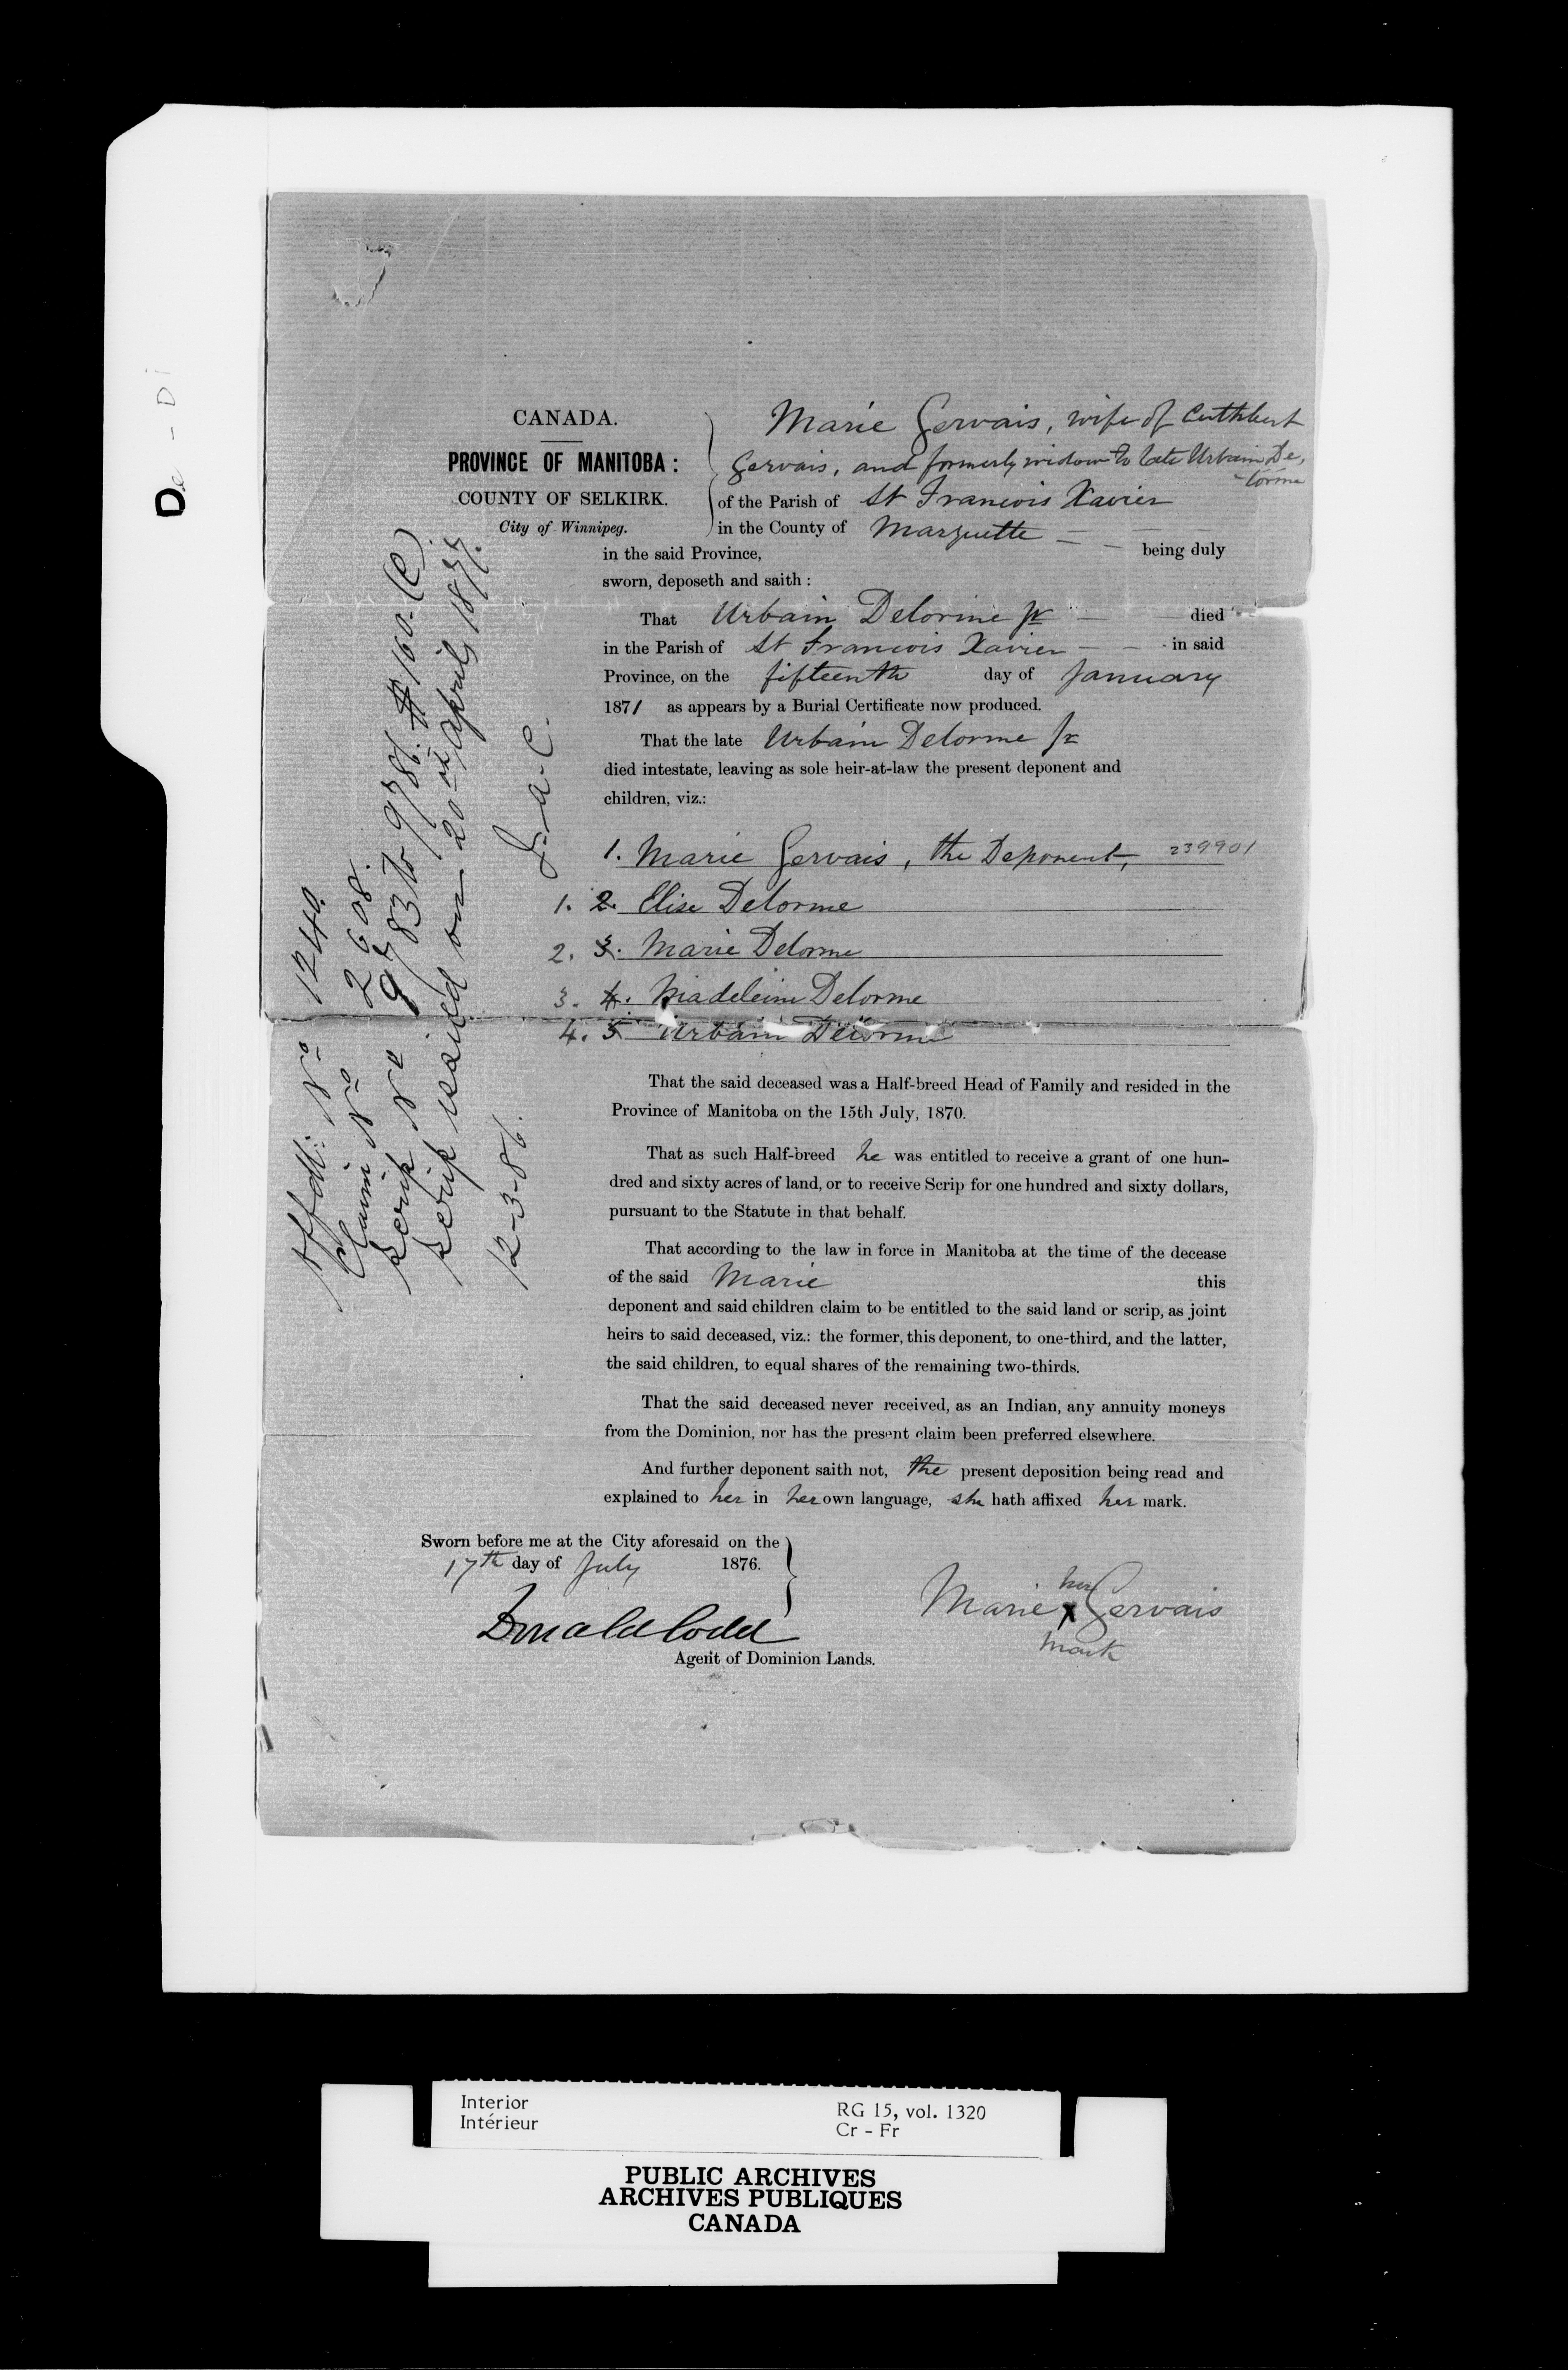 De - Di
CANADA.
PROVINCE OF MANITOBA :
COUNTY OF SELKIRK.
City of Winnipeg.
Marie Gervais, wife of Cuthbert
Gervais, and formerly widow to late Urbain De,
-lorme
of the Parish of St Francois Xavier
in the County of Marquette — —
in the said Province, being duly
sworn, deposeth and saith :
That Urbain Delorme Jr — died
in the Parish of St Francois Xavier — — in said
Province, on the fifteenth day of January
1871 as appears by a Burial Certificate now produced.
That the late Urbain Delorme Jr
died intestate, leaving as sole heir-at-law the present deponent and
children, viz.:
1. Marie Gervais, the Deponent, 239901
1. 2. Elise Delorme
2. 3. Marie Delorme
3. 4. Madeleine Delorme
4. 5 Urbain Delorme
That the said deceased was a Half-breed Head of Family and resided in the
Province of Manitoba on the 15th July, 1870.
That as such Half-breed he was entitled to receive a grant of one hun-
dred and sixty acres of land, or to receive Scrip for one hundred and sixty dollars,
pursuant to the Statute in that behalf.
That according to the law in force in Manitoba at the time of the decease
of the said Marie this
deponent and said children claim to be entitled to the said land or scrip, as joint
heirs to said deceased, viz.: the former, this deponent, to one-third, and the latter,
the said children, to equal shares of the remaining two-thirds.
That the said deceased never received, as an Indian, any annuity moneys
from the Dominion, nor has the present claim been preferred elsewhere.
And further deponent saith not, the present deposition being read and
explained to her in her own language, she hath affixed her mark.
Sworn before me at the City aforesaid on the
17th day of July 1876.
Donald Codd
Agent of Dominion Lands.
her
Marie X Gervais
mark
Affdt: No 1240.
Claim No 2608.
Scrip No 9783 to 9786. $160. (C)
Scrip issued on 20th April 1877.
12-3-86. J. A. C.
Interior
Intérieur
RG 15, vol. 1320
Cr - Fr
PUBLIC ARCHIVES
ARCHIVES PUBLIQUES
CANADA